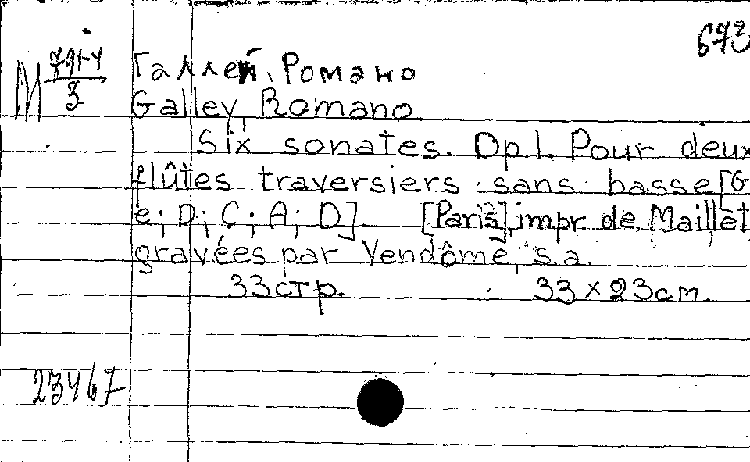 673
М 3
Галлей, Романо
Galley, Romano.
Six sonates. Op 1. Pour deux
flûtes traversiers sans basse [G
e; D; C; A; D]. [Paris], impr. de Maillet
gravées par Vendôme, s.a.
33 стр. 33 x 23 см.
23467